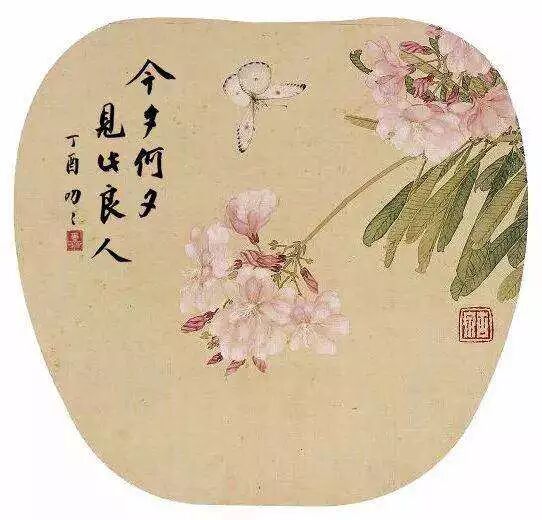 今夕何夕
見此良人
丁酉